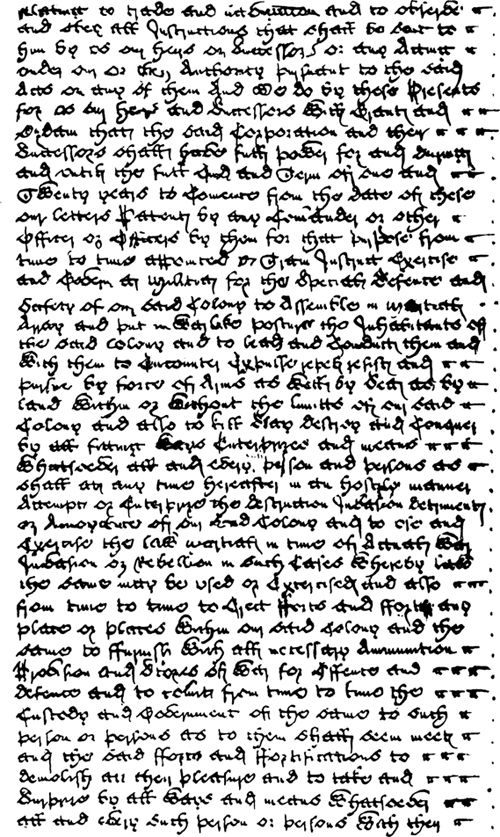 relating to trade and and to observe
and obey all Instructions that shall be sent to
him by us our heirs or Successors or any Acting
under our or their Authority pursuant to the said
Acts or any of them And We do by these Presents
for us our heirs and Successors Will Grant and
Ordain that the said Corporation and their
Successors shall have full power for and during
and until the full End and Term of One and
Twenty years to Comence from the date of these
our Letters Patent by any Comander or other
Officer or Officers by them for that purpose from
time to time appointed to Train Instruct Exercise
and Govern a Militia for the Special defence and
Safety of our said Colony to Assemble in Martial
Array and put in Warlike posture the Inhabitants of
the said Colony and to lead and Conduct them and
With them to Encounter Expulse repel resist and
pursue by force of Arms as Well by Sea as by
land Within or Without the limits of our said
Colony and also to kill Slay destroy and Conquer
by all fitting Ways Enterprizes and means
Whatsoever all and every person and persons as
shall at any time hereafter in an Hostile manner
Attempt or Enterprize the destruction Invasion detriment
or Annoyance of our said Colony and to use and
Exercise the law martial in time of Actual War
Invasion or Rebellion in such Cases Whereby law
the same may be used or Exercised and also
from time to time to Erect fforts and fforty any
place or places Within our said Colony and the
same to ffurnish With all necessary Ammunition
Provision and Stores of War for Offence and
defence and to comitt from time to time the
Custody and Government of the same to such
person or persons as to them shall seem meet
and the said fforts and ffortifications to
demolish at their pleasure and to take and
Surprize by all Ways and means Whatsoever
all and every such person or persons With their